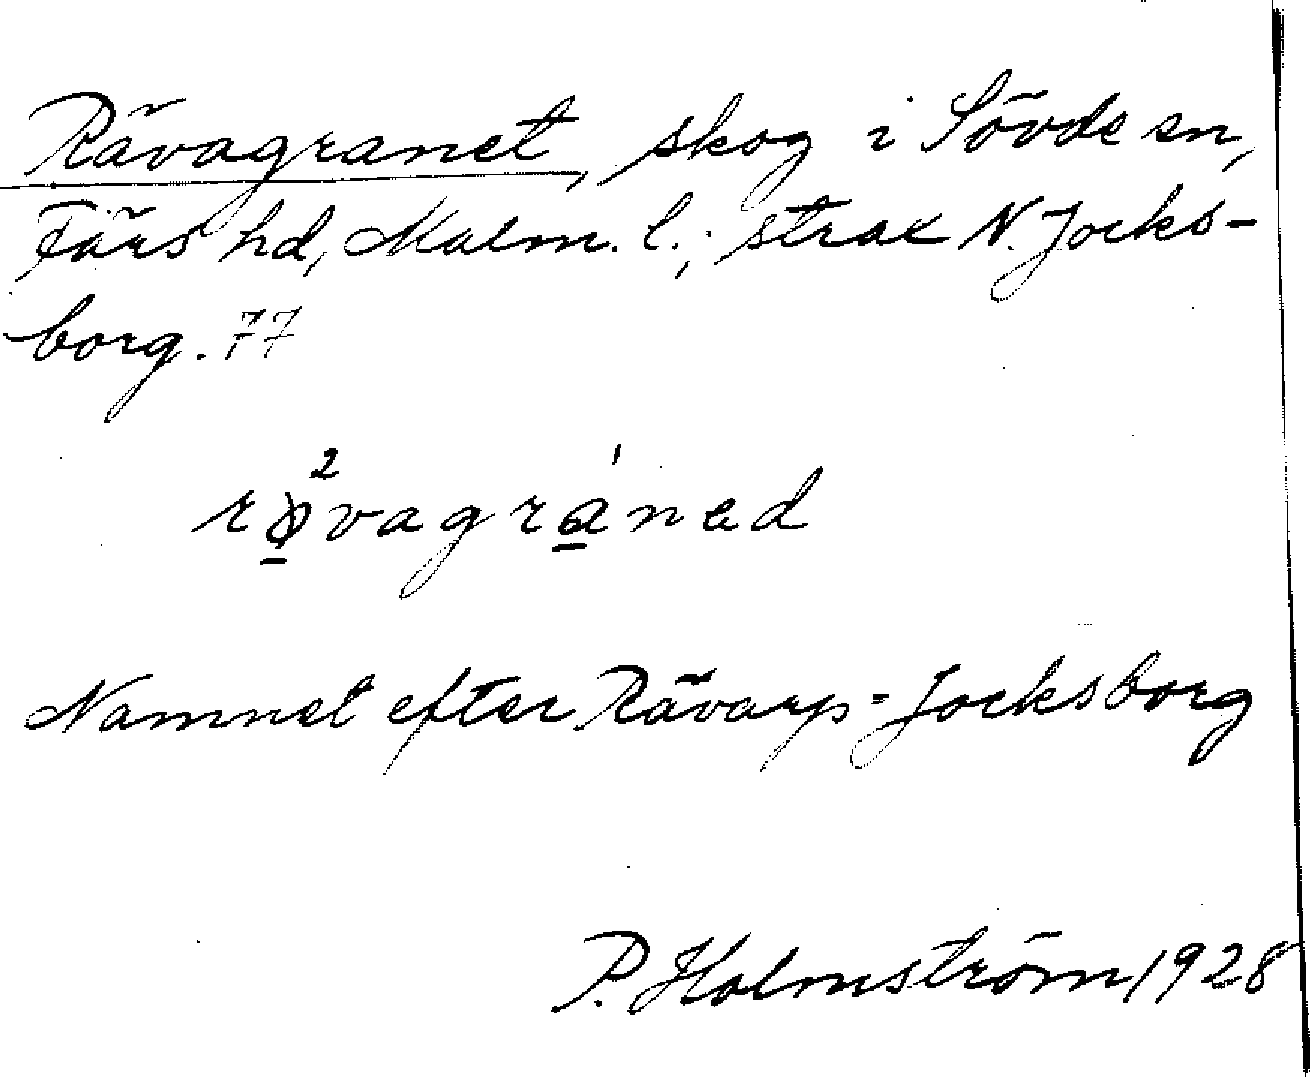 Rävagranet, skog i Sövde sn,
Färs hd, Malm. l.; strax N. Jocks-
borg. 77
2 1
rävagraned
Namnet efter Rävarp-Jocksborg
P. Holmström 1928